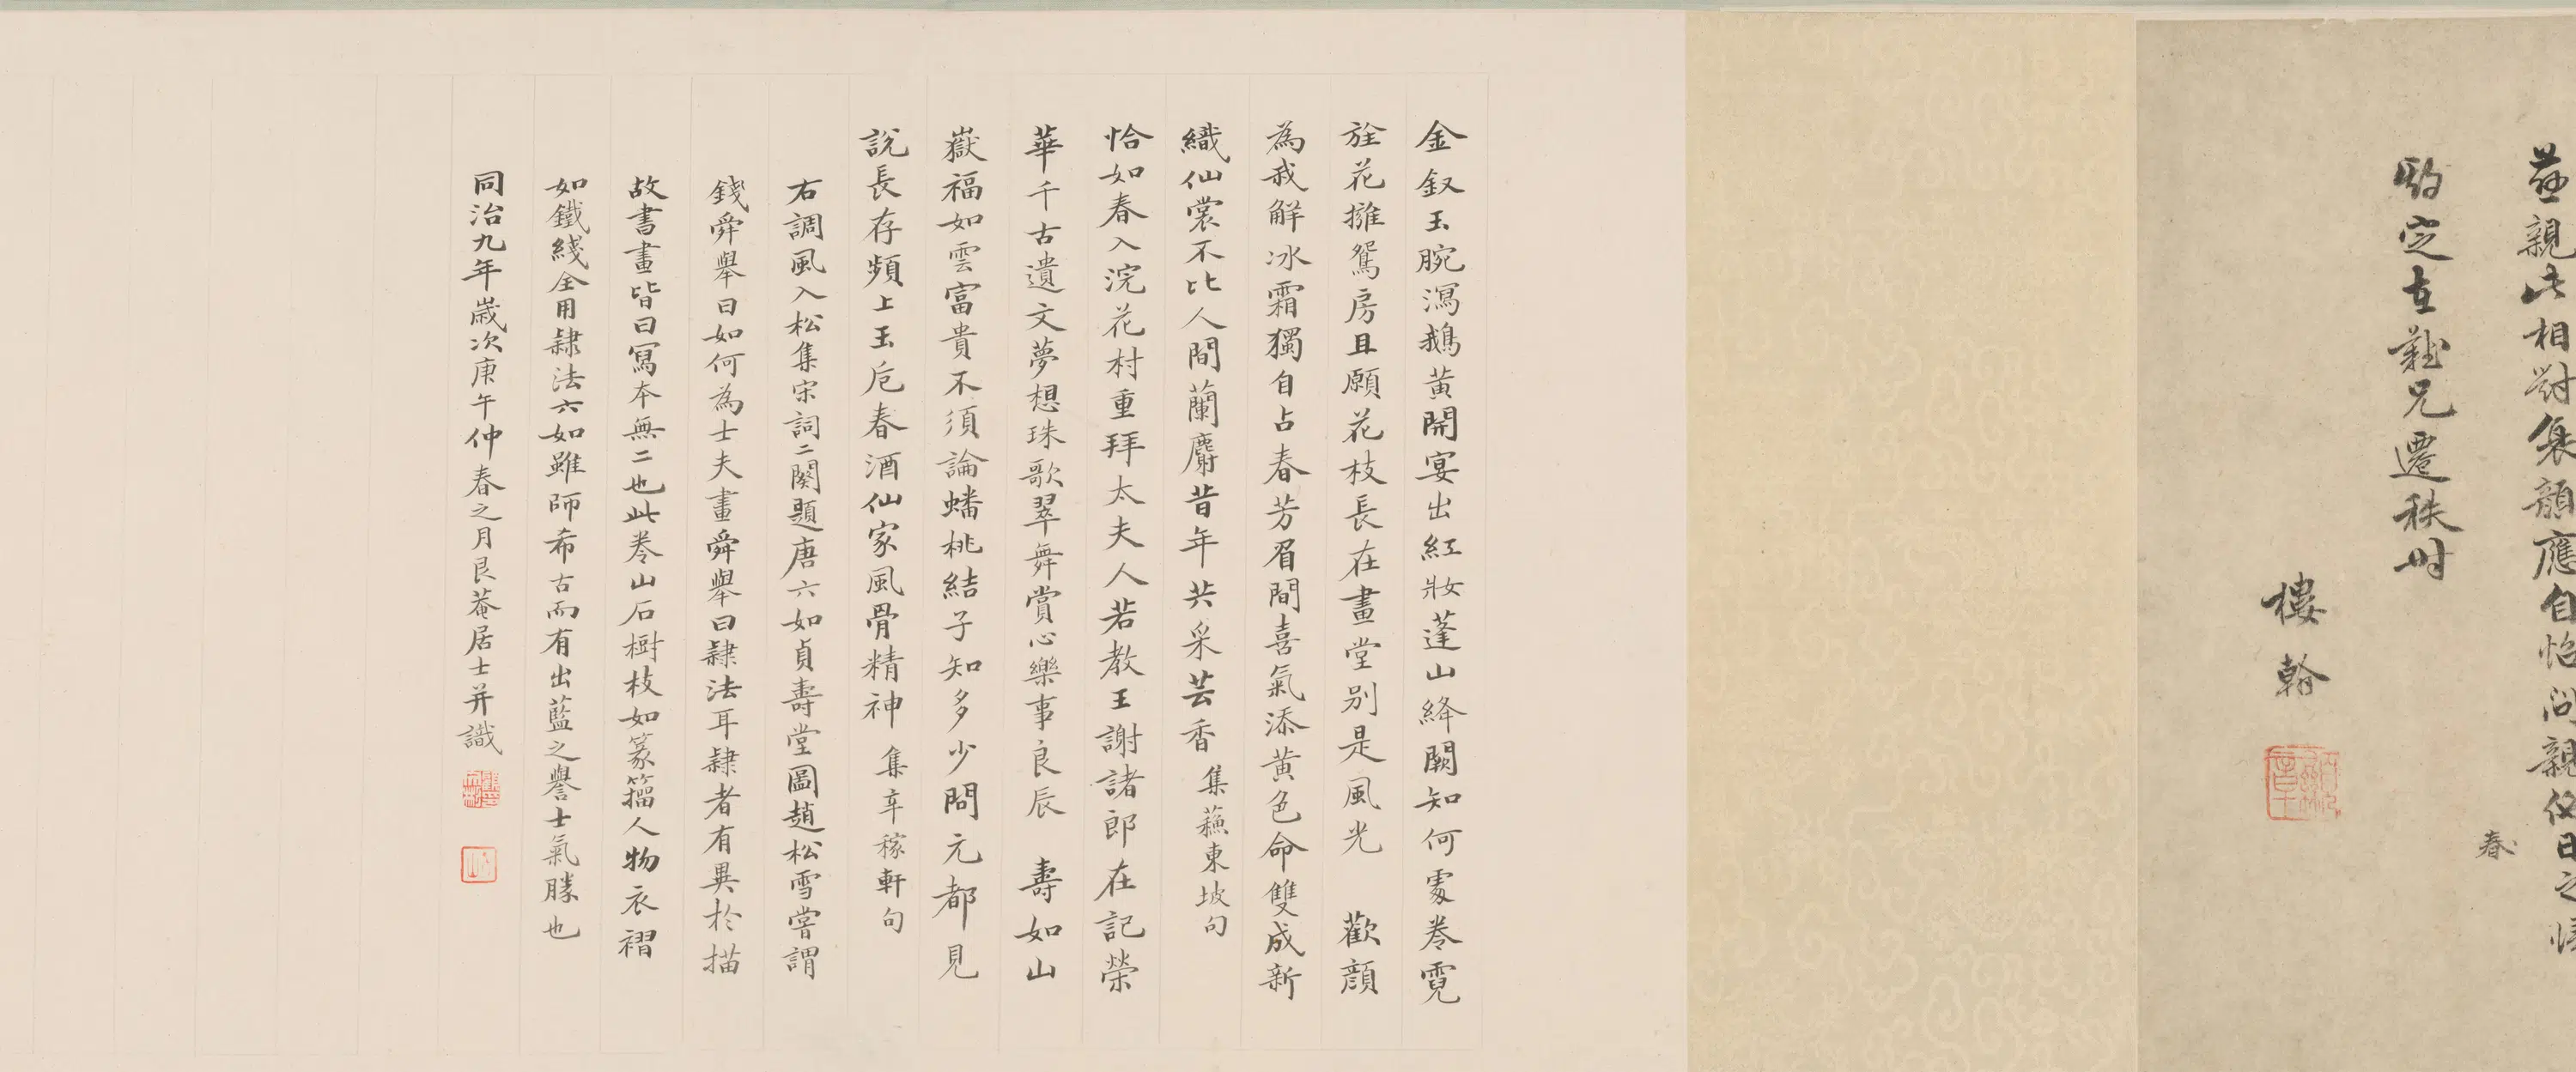 茲親此相對集顏應自怡so親仪日之
春
定在難兄遷秩時
樓翰
金釵玉腕瀉鵝黃開宴出紅妝蓬山絳闕知何處卷霓
旌花擁鴛房且願花枝長在畫堂別是風光 歡顏
為我解冰霜獨自占春芳眉間喜氣添黃色命雙成新
織仙裳不比人間蘭麝昔年共采芸香 集蘓東坡句
恰如春入浣花村重拜太夫人若教王謝諸郎在記榮
華千古遺文夢想珠歌翠舞賞心樂事良辰 壽如山
嶽福如雲富貴不須論蟠桃結子知多少問元都見
說長存頻上玉卮春酒仙家風骨精神 集辛稼軒句
右調風入松集宋詞二闋題唐六如貞壽堂圖趙松雪嘗謂
錢舜舉曰如何為士夫畫舜舉曰隸法耳隸者有異於描
故書畫皆曰寫本無二也此卷山石樹枝如篆籀人物衣褶
如鐵綫全用隸法六如雖師希古而有出藍之譽士氣勝也
同治九年歲次庚午仲春之月艮菴居士并識